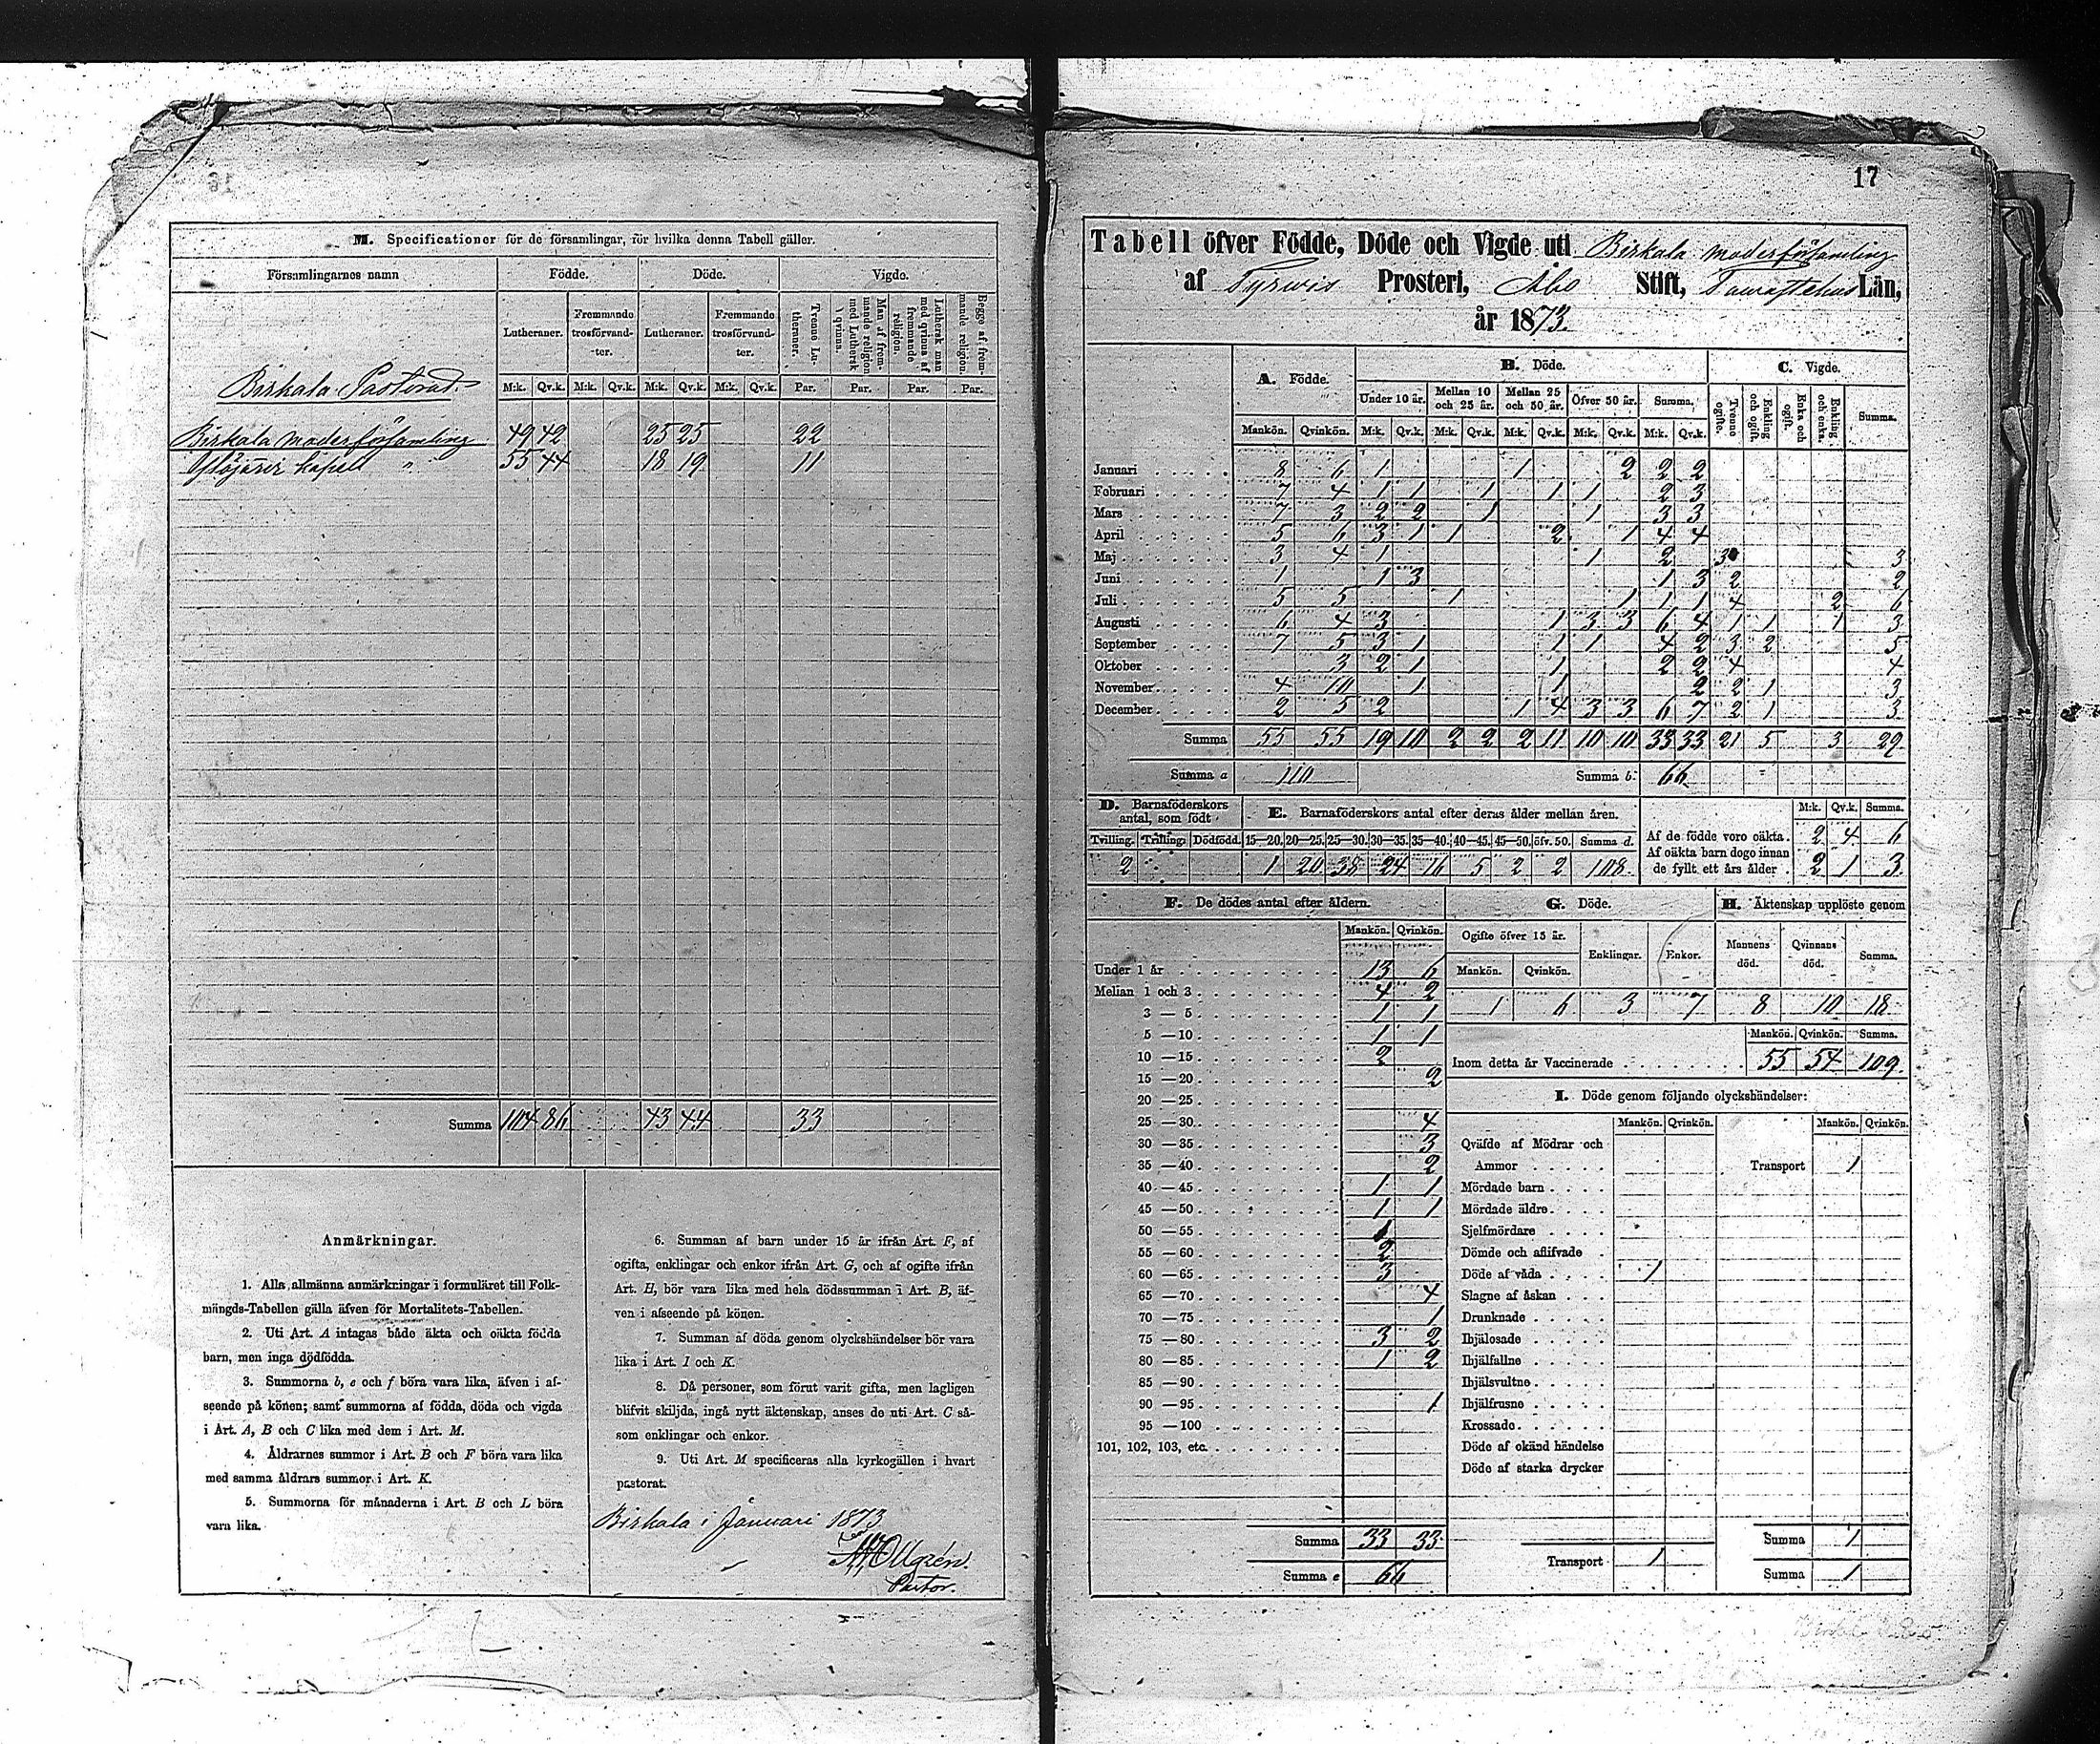 M. Specificationer för de församlingar, för hvilka denna Tabell gäller.
Församlingarnes namn Födde. Döde. Vigde.
Lutheraner. Fremmande trosförvand-ter. Lutheraner. Fremmande trosförvand-ter. Tvenne Lu-theraner. Man af frem-mande religion med Luthersk qvinna. Luthersk man med qvinna af fremmande religion. Begge af frem-mande religion.
M:k. Qv.k. M:k. Qv.k. M:k. Qv.k. M:k. Qv.k. Par. Par. Par. Par.
Birkala Pastorad
Birkala moderförsamling 49 42 25 25 22
Ylöjärvi kapell " 55 44 18 19 11
Summa 104 86 43 44 33
Anmärkningar.
1. Alla allmänna anmärkningar i formuläret till Folk-
mängds-Tabellen gälla äfven för Mortalitets-Tabellen.
2. Uti Art. A intagas både äkta och oäkta födda
barn, men inga dödfödda.
3. Summorna b, e och f böra vara lika, äfven i af-
seende på könen; samt summorna af födda, döda och vigda
i Art. A, B och C lika med dem i Art. M.
4. Åldrarnes summor i Art. B och F böra vara lika
med samma åldrars summor i Art. K.
5. Summorna för månaderna i Art. B och L böra
vara lika.
6. Summan af barn under 15 år ifrån Art. F, af
ogifta, enklingar och enkor ifrån Art. G, och af ogifte ifrån
Art. H, bör vara lika med hela dödssumman i Art. B, äf-
ven i afseende på könen.
7. Summan af döda genom olyckshändelser bör vara
lika i Art. I och K.
8. Då personer, som förut varit gifta, men lagligen
blifvit skiljda, ingå nytt äktenskap, anses de uti Art. C så-
som enklingar och enkor.
9. Uti Art. M specificeras alla kyrkogällen i hvart
pastorat.
Birkala i Januari 1873
Ollgrén.
Pastor.
17
Tabell öfver Födde, Döde och Vigde uti Birkala moderförsamling
af Tyrwis Prosteri, Åbo Stift, Tavastehus Län,
år 1873.
A. Födde. B. Döde. C. Vigde.
Under 10 år. Mellan 10 och 25 år. Mellan 25 och 50 år. Öfver 50 år. Summa. Tvenne ogifte. Enkling och ogift. Enka och ogift. Enkling och enka. Summa.
Mankön. Qvinkön. M:k. Qv.k. M:k. Qv.k. M:k. Qv.k. M:k. Qv.k. M:k. Qv.k.
Januari 8 6 1 1 2 2 2
Februari 7 4 1 1 1 1 1 2 3
Mars 7 3 2 2 1 1 3 3
April 5 6 3 1 1 2 1 4 4
Maj 3 4 1 1 2 3 3
Juni 1 1 3 1 3 2 2
Juli 5 5 1 1 1 1 4 2 6
Augusti 6 4 3 1 3 3 6 4 1 1 1 3
September 7 5 3 1 1 1 4 2 3 2 5
Oktober 3 2 1 1 2 2 4 4
November 4 10 1 1 2 2 1 3
December 2 5 2 1 4 3 3 6 7 2 1 3
Summa 55 55 19 10 2 2 2 11 10 10 33 33 21 5 3 29
Summa a 110 Summa b. 66
D. Barnaföderskors antal, som födt
Tvilling. Trilling. Dödfödd.
2
E. Barnaföderskors antal efter deras ålder mellan åren.
15—20. 20—25. 25—30. 30—35. 35—40. 40—45. 45—50. öfv. 50. Summa d.
1 20 38 24 16 5 2 2 108
M:k. Qv.k. Summa.
Af de födde voro oäkta. 2 4 6
Af oäkta barn dogo innan
de fyllt ett års ålder. 2 1 3
F. De dödes antal efter åldern.
Mankön. Qvinkön.
Under 1 år 13 6
Mellan 1 och 3 4 2
3 — 5 1 1
5 — 10 1 1
10 — 15 2
15 — 20 2
20 — 25
25 — 30 4
30 — 35 3
35 — 40 2
40 — 45 1 1
45 — 50 1 1
50 — 55 1
55 — 60 2
60 — 65 3
65 — 70 4
70 — 75 1
75 — 80 3 2
80 — 85 1 2
85 — 90
90 — 95 1
95 — 100
101, 102, 103, etc.
Summa 33 33
Summa e 66
G. Döde.
Ogifte öfver 15 år. Enklingar. Enkor.
Mankön. Qvinkön.
1 6 3 7
H. Äktenskap upplöste genom
Mannens död. Qvinnans död. Summa.
8 10 18
Mankön. Qvinkön. Summa.
Inom detta år Vaccinerade 55 54 109
I. Döde genom följande olyckshändelser:
Mankön. Qvinkön. Mankön. Qvinkön.
Qväfde af Mödrar och
Ammor Transport 1
Mördade barn
Mördade äldre
Sjelfmördare
Dömde och aflifvade
Döde af våda 1
Slagne af åskan
Drunknade
Ihjälosade
Ihjälfallne
Ihjälsvultne
Ihjälfrusne
Krossade
Döde af okänd händelse
Döde af starka drycker
Summa 1
Transport 1
Summa 1